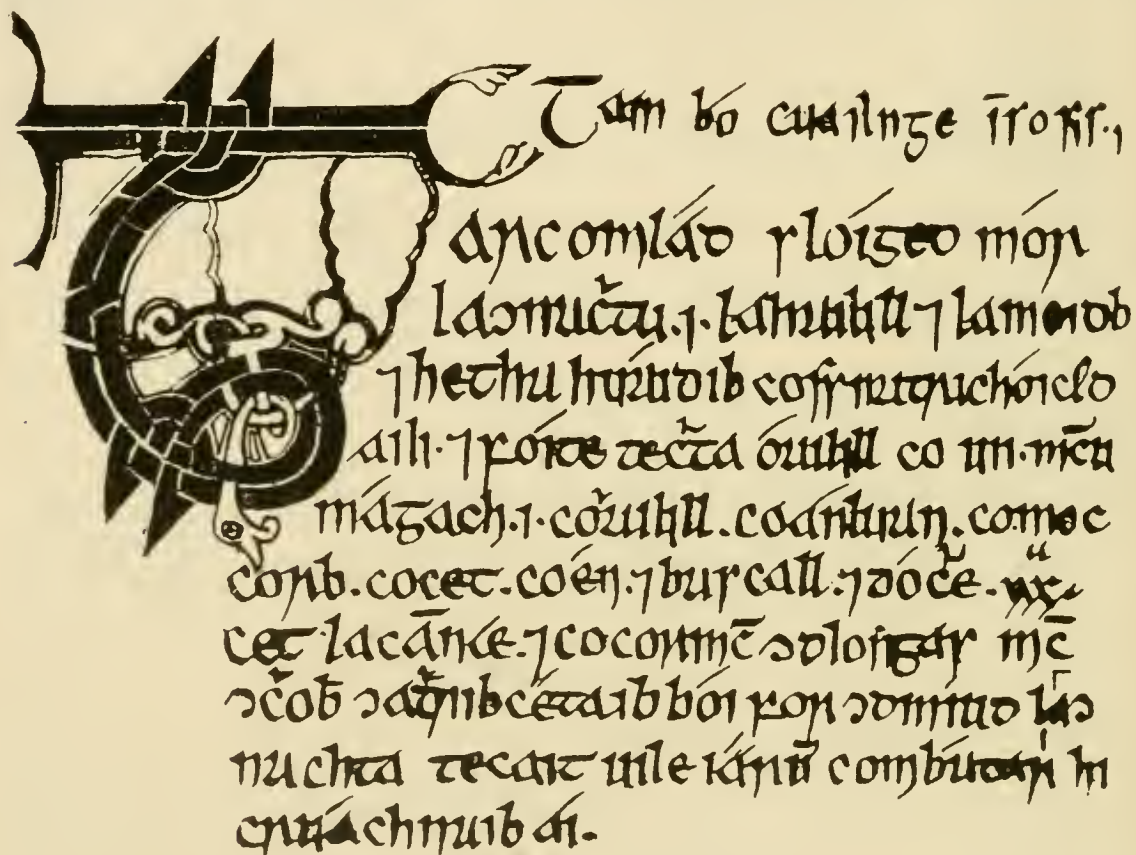 Tain bó cuailnge īso sis.
Tarcomlád slóiged mór
la ɔnachtu .i. la hailill ⁊ la meidb
⁊ hetha huaidib cossna tri chóiced
aili. ⁊ foíte techta ó ailill co uii. mcu
mágach .i. co ailill. co ánluan. co moc
corb. co cet. co én. ⁊ bascall. ⁊ dóche. xxx.
cet la cā náe. ⁊ co cormc ɔdlongas mc̄
ɔcob ɔa trib cétaib bói for ɔdmiud la ɔ
nachta tecait uile iarū combátar hi
cruachnaib ai.